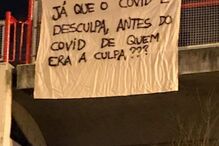 JÁ QUE O COVID É
DESCULPA, ANTES DO
COVID DE QUEM
ERA A CULPA???